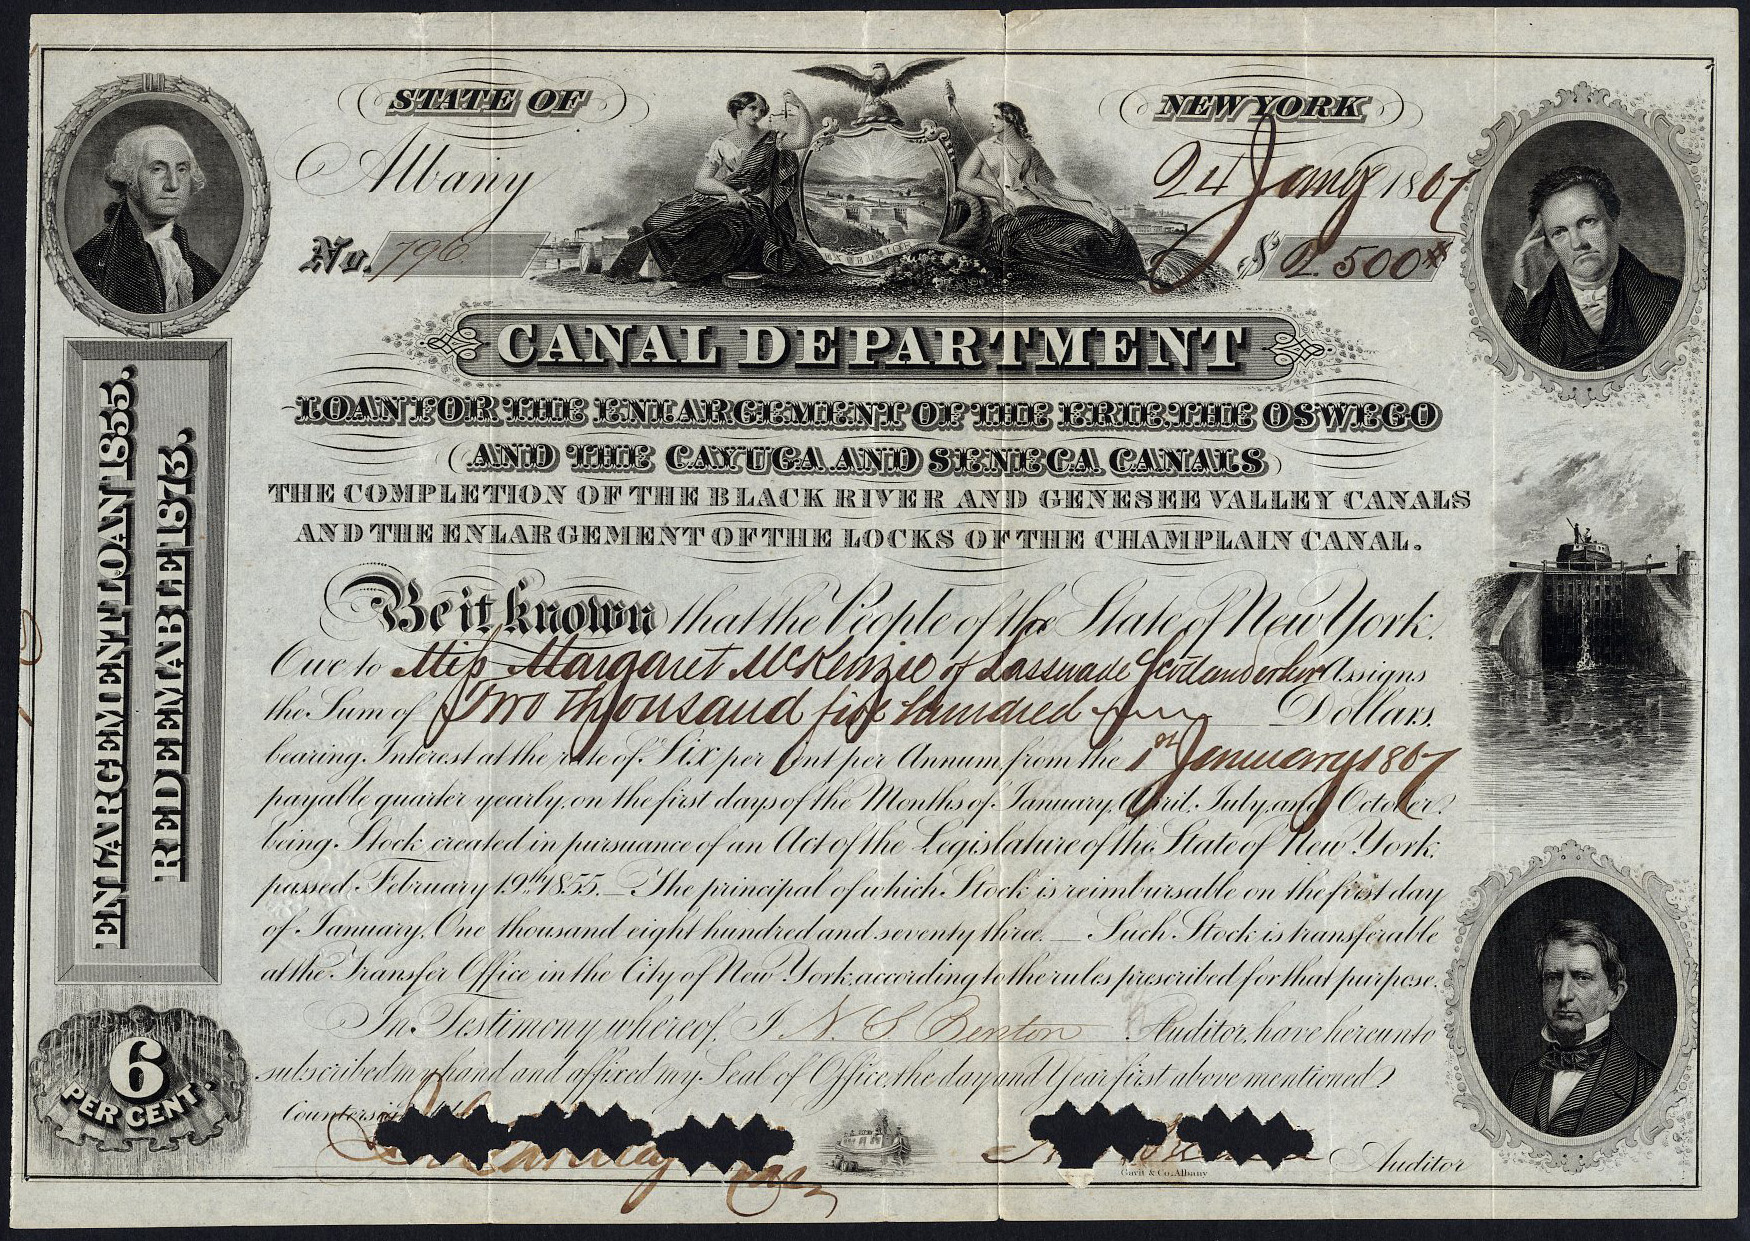 STATE OF NEW YORK
Albany 24 Jany 1867
No. 796 $ 2.500
EXCELSIOR
CANAL DEPARTMENT
LOAN FOR THE ENLARGEMENT OF THE ERIE, THE OSWEGO
AND THE CAYUGA AND SENECA CANALS
THE COMPLETION OF THE BLACK RIVER AND GENESEE VALLEY CANALS
AND THE ENLARGEMENT OF THE LOCKS OF THE CHAMPLAIN CANAL.
ENLARGEMENT LOAN 1855.
REDEEMABLE 1873.
Be it known that the People of the State of New York.
Owe to Miss Margaret McKenzie of Lasswade Scotland or her Assigns
the Sum of Two thousand five hundred Dollars,
bearing Interest at the rate of Six per Cent per Annum, from the 1st January 1867
payable quarter yearly, on the first days of the Months of January, April, July, and October
being Stock created in pursuance of an Act of the Legislature of the State of New York,
passed February 19th 1855. The principal of which Stock is reimbursable on the first day
of January, One thousand eight hundred and seventy three. Such Stock is transferable
at the Transfer Office in the City of New York, according to the rules prescribed for that purpose.
In Testimony whereof, I N S Benton Auditor, have hereunto
subscribed my hand and affixed my Seal of Office, the day and Year first above mentioned
6
PER CENT.
Auditor
Gavit & Co. Albany